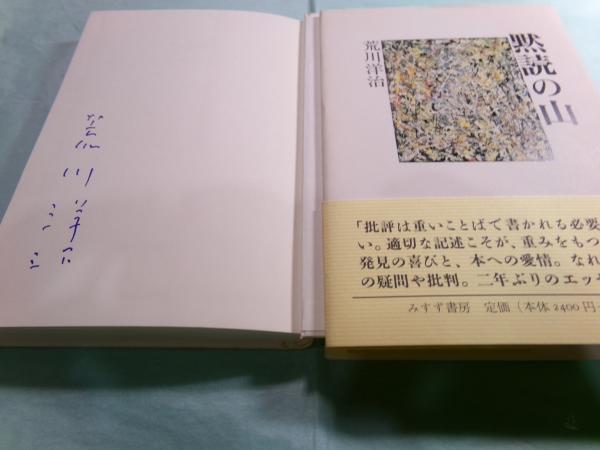 荒川洋治
黙読の山
荒川洋治
「批評は重いことばで書かれる必要
い。適切な記述こそが、重みをもつ
発見の喜びと、本への愛情。なれ
の疑問や批判。二年ぶりのエッセ
みすず書房 定価(本体2400円